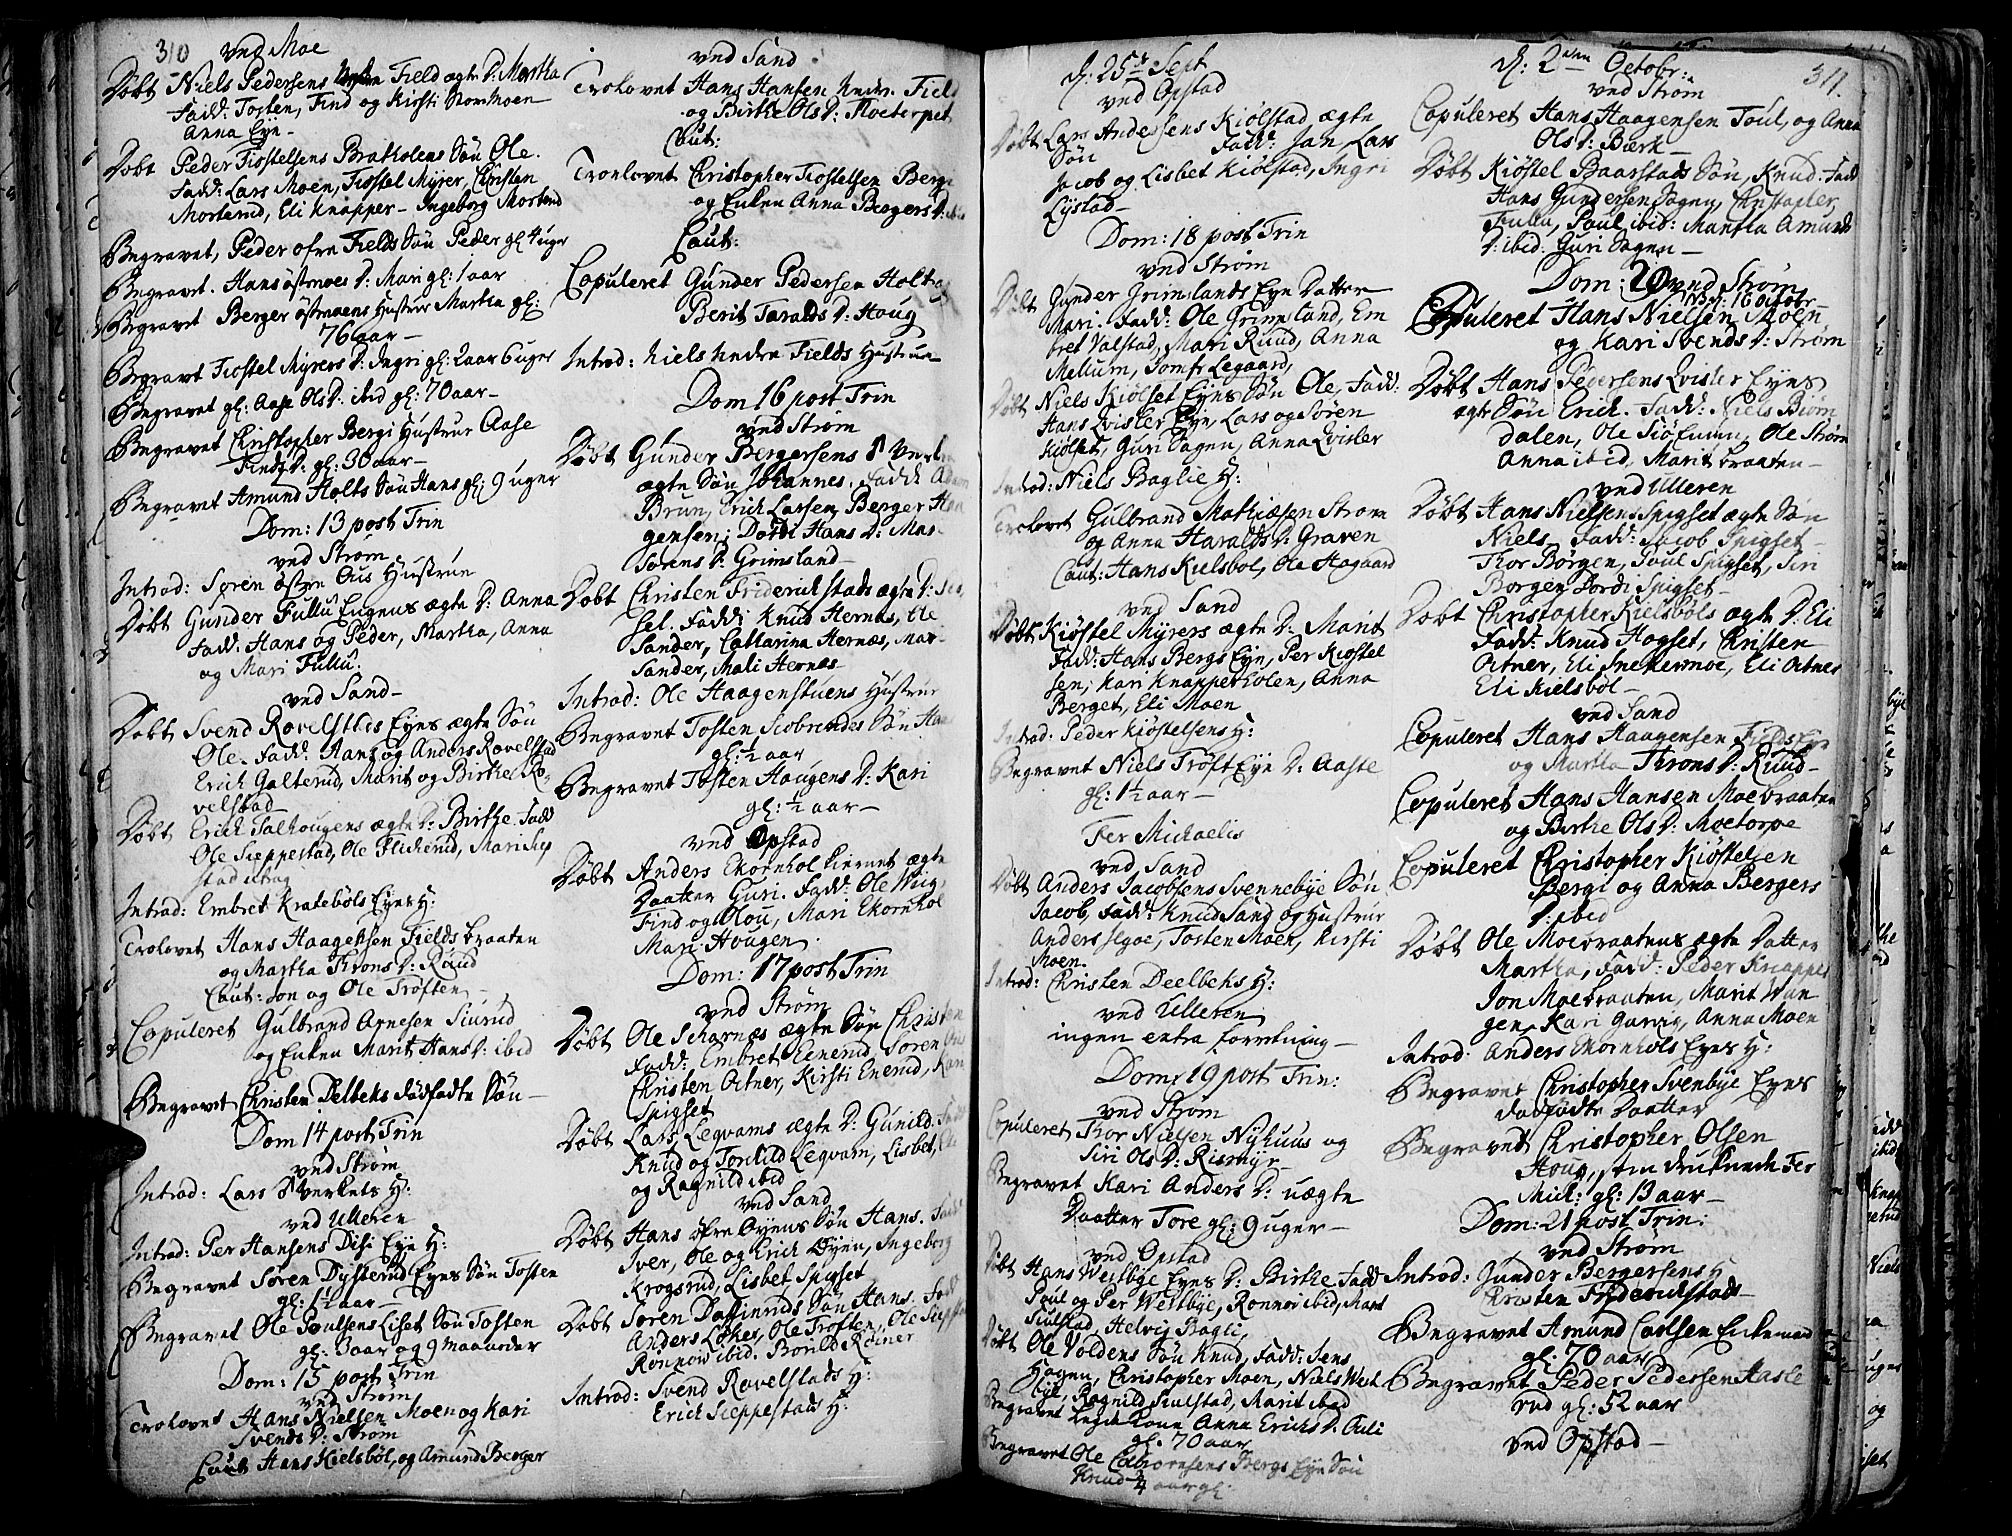 310
ved Moe
Døbt Niels Pedersens Field ægte D: Martha
Fadd: Tosten, Find og Kirsti Nordmoen
Anna Eye-
Døbt Peder Kiostelsens Bratholens Søn Ole.
Fadd: Lars Moen, Kiostel Myrer, Christen
Morterud, Eli Knapper- Ingeborg Morterud
Begravet, Peder ofre Fields Søn Peder gl 4 uger
Begravet. Hans østmoes D: Mari gl: 1 aar
Begravet Berger østmoens Hustrue Martha gl:
76 aar-
Begravt Kiostel Myrers D: Ingri gl: 2 aar 6 uger
Begravet gl: Aase Ols D: ibid gl: 70 aar-
Begravet Christopher Bergi Hustrue Aase
Finds D: gl: 30 aar-
Begravet Amund Holts Søn Hans gl: 9 uger
Dom: 13 post Trin
ved Strøm
Introd: Soren østre Ous Hustrue
Døbt Gunder Fullu Eyens ægte D: Anna
Fadd: Hans og Peder, Martha, Anna
og Mari Fullu.
ved Sand-
Døbt Svend Rovelstads Eyes ægte Søn
Ole. Fadd: Hans og Anders Rovelstad
Erich Galterud, Marit og Birthe Ro-
velstad-
Døbt Erich Galhougens ægte D: Birthe. Fadd
Ole Sieppestad, Ole Flicherud, Mari Siep
stad
Introd: Embret Kratebøls Eyes H:
Trolovet Hans Haagensen Fields braaten
og Martha Throns D: Ruud
Caut: Jon og Ole Trøften-
Copuleret Gulbrand Arnesen Siurud
og Enken Marit Hans D: ibid
Begravet Christen Delbeks dødfødte Søn-
Dom 14 post Trin
ved Strøm
Introd: Lars Øverkels H:
ved Ulleren
Introd: Per Hansens Disi Eye H:
Begravet Søren Dysterud Eyes Søn Tosten
gl: 1½ aar-
Begravet Ole Poulsens Liset Søn Tosten
gl: 3 aar og 9 maaneder
Dom: 15 post Trin
ved Strøm
Trolovet Hans Nielsen Moen og Kari
Svends D: Strøm
Caut Hans Kielsbøl, og Amund Berger
ved Sand
Trolovet Hans Hansen Nedre Field
og Birthe Ols D: Moeterpet
Caut:
Troelovet Christopher Kiostelsen Bergi
og Enken Anna Bergers D:
Caut:
Copuleret Gunder Pedersen Holt og
Berit Taralds D: Houg
Introd: Niels Nedre Fields Hustrue
Dom 16 post Trin
ved Strøm
Døbt Gunder Bergersens
ægte Søn Johannes. Fadd: Adam
Brun, Erich Larsen, Berger
gensen, Dorthi Hans D:
Sørens D: Grimsland-
Døbt Christen Friderichstads ægte D:
sel. Fadd: Knud Hernæs, Ole
Sander, Catharina Hernæs, Mar-
Sander, Mali Hernæs
Introd: Ole Haagenstuens Hustrue
Begravet Tosten Siobrendes Søn
gl: ½ aar
Begravet Tosten Haugens D: Kari
gl: ½ aar-
ved Opstad
Døbt Anders Ekornhol ægte
Daatter Guri. Fadd: Ole Wiig,
Find og Olou, Mari Ekornhol
Mari Hougen
Dom: 17 post Trin
ved Strøm
Døbt Ole Scharnæs ægte Søn Christen
Fadd: Embret Eenerud, Søren Ous
Christen Ortner, Kirsti Enerud,
Spigset
Døbt Lars Legvams ægte D: Gunild. Fadd
Knud og Torkild Legvam, Lisbet,
og Ragnild ibid
ved Sand
Døbt Hans øfre Øyens Søn Hans. Fadd
Iver, Ole og Erich Øyen, Ingeborg
Krogsrud, Lisbet Spigset
Døbt Søren Daffinruds Søn Hans. Fadd
Anders Løken, Ole Trøften, Ole
Ronnow ibid. Boruld Røiner
Introd: Svend Rovelstads H:
Erich Sieppestads H:
d: 25de Sept
ved Opstad
Døbt Lars Andersens Kiølstad ægte
Søn Fadd: Jan Lars
Jacob og Lisbet Kiølstad, Ingri
Lystad-
Dom: 18 post Trin
ved Strøm
Døbt Gunder Grimslands Eye Datter
Mari. Fadd: Ole Grimsland, Em
bret Valstad, Mari Ruud, Anna
Mellum, Jomfr Legaard,
Døbt Niels Kiølset Eyes Søn Ole, Fadd:
Hans Qvisler Eye, Lars og Søren
Kiølset, Guri Sagen, Anna Qvisler
Introd: Niels Baglie H:
Trolovet Gulbrand Mathiæsen Strøm
og Anna Haralds D: Graven
Caut: Hans Kielsbol, Ole Haagaard
ved Sand
Døbt Kiøstel Myrers ægte D: Marit
Fadd: Hans Bergs Eye, Per Kiostel
sen, Kari Knapperholen, Anna
Berget, Eli Moen
Introd: Peder Kiøstelsens H:
Begravet Niels Trøft Eye D: Aaste
gl: 1½ aar-
Fer Michaelis
ved Sand
Døbt Anders Jacobsens Svennebye Søn
Jacob, Fadd: Knud Sand og Hustrue
Anders Segoe, Tosten Moen, Kirsti
Moen.
Introd: Christen Deelbeks H:
ved Ulleren
ingen extra forretning-
Dom: 19 post Trin:
ved Strøm
Copuleret Thor Nielsen Nyhuus og
Siri Ols D: Rismyr-
Begravet Kari Anders D: uægte
Daatter Tore gl: 9 uger-
ved Opstad
Døbt Hans Westbye Eyes D: Birthe Fadd
Poul og Per Westbye, Ronnov ibid, Marit
Siulstad, Helvig Bagli,
Døbt Ole Voldens Søn Knud, Fadd: Jens
Hagen, Christopher Moen, Niels West
bye, Ragnild Siulstad, Marit ibid
Begravet Anna Erichs D: Auli
gl: 70 aar
Begravet Ole Bergs Eye Søn
Knud ¾ aar gl:
311.
d: 2den Octobr:
ved Strøm
Copuleret Hans Haagensen Toul, og Anna
Ols D: Bærk-
Døbt Kiøstel Baarstads Søn, Knud. Fadd
Hans Gundersen Sagen, Christopher
Fullu, Poul ibid: Martha Amunds
D: ibid: Guri Sagen-
Dom: 20 ved Strøm
d: 16 octobr-
Copuleret Hans Nielsen Moen
og Kari Svends D: Strøm
Døbt Hans Pedersens Qvisler Eyes
ægte Søn Erich. Fadd: Niels Biørn
dalen, Ole Siøenum, Ole Strøm
Anna ibid, Marit braaten-
ved Ulleren
Døbt Hans Nielsens Spigset ægte Søn
Niels, Fadd: Jacob Spigset-
Thor Børgen, Poul Spigset, Siri
Borgen, Dordi Spigset-
Døbt Christopher Kielsbøls ægte D: Eli
Fadd: Knud Hogset, Christen
Ortner, Eli Snekermoe, Eli Ortner
Eli Kielsbøl-
ved Sand
Copuleret Hans Haagensen Fields Eye
og Martha Throns D: Ruud-
Copuleret Hans Hansen Moebraaten
og Birthe Ols D: Moetorpe
Copuleret Christopher Kiøstelsen
Bergi og Anna Bergers
D: ibid
Døbt Ole Moebraatens ægte Datter
Martha, Fadd: Peder Knapper
Jon Moebraaten, Marit Wan
gen, Kari Garvig, Anna Moen
Introd: Anders Ekornhols Eyes H:
Begravet Christopher Svenbye Eyes
dødfødte Daatter
Begravet Christopher Olsen
Houg, som druknede Fer
Mich: gl: 13 aar-
Dom: 21 post Trin:
ved Strøm
Introd: Gunder Bergersens H
Christen Friderichstads
Begravet Amund Carlsen Enkemand
gl: 70 aar
Begravet Peder Pedersen Hasle
ved gl: 52 aar
ved Opstad-